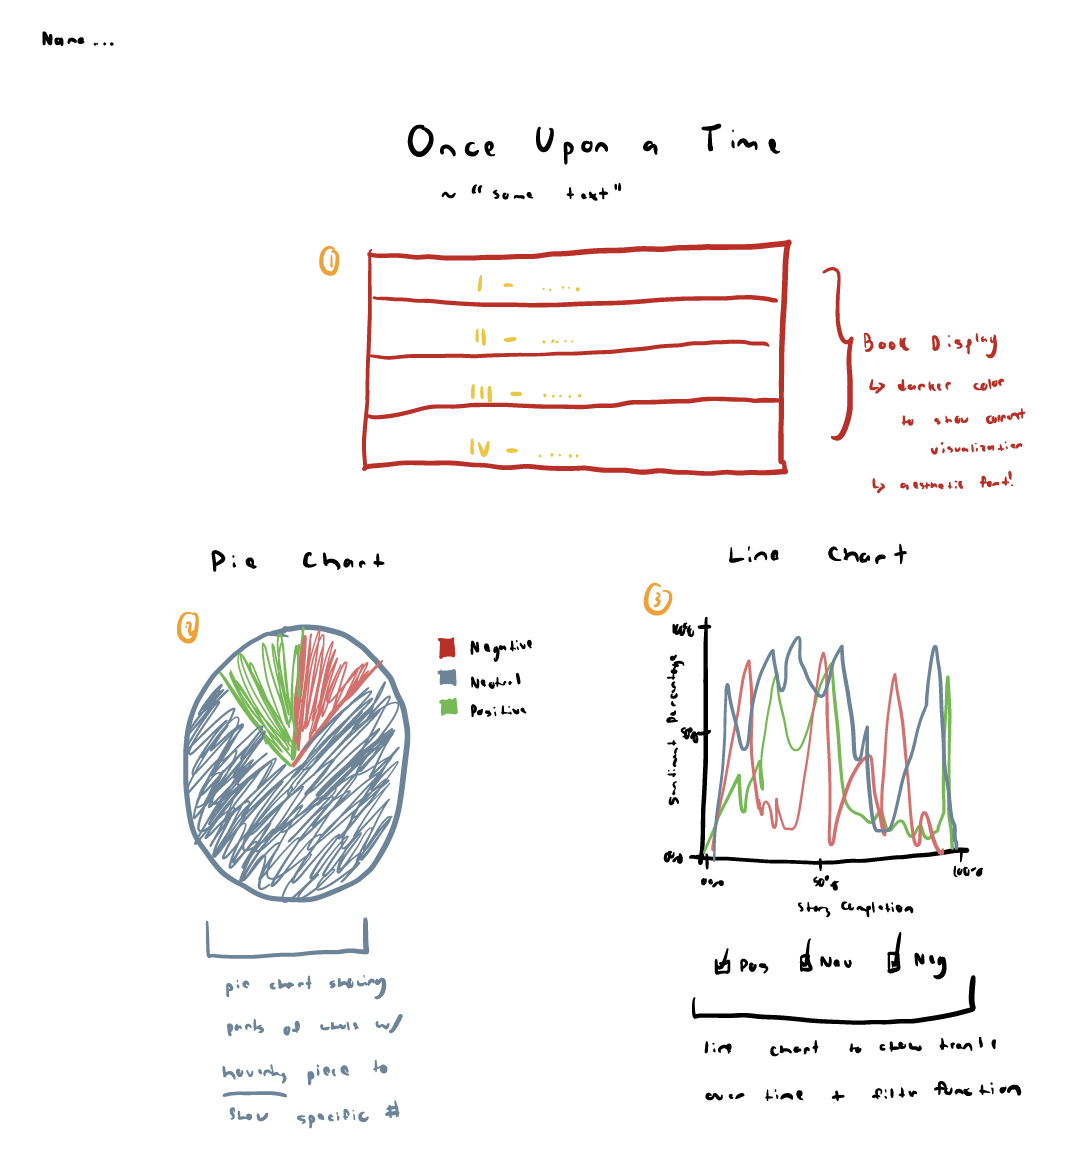 Name ...
Once Upon a Time
~ "some text"
1
I - .....
II - .....
III - .....
IV - .....
Book Display
↳ darker color
to show current
visualization
↳ aesthetic font!
Pie Chart
2
Negative
Neutral
Positive
pie chart showing
parts of whole w/
hovering piece to
show specific #
Line Chart
3
100%
50%
0%
Sentiment Percentage
00%
50%
100%
Story Completion
Pos
Neu
Neg
line chart to show trends
over time + filtr function